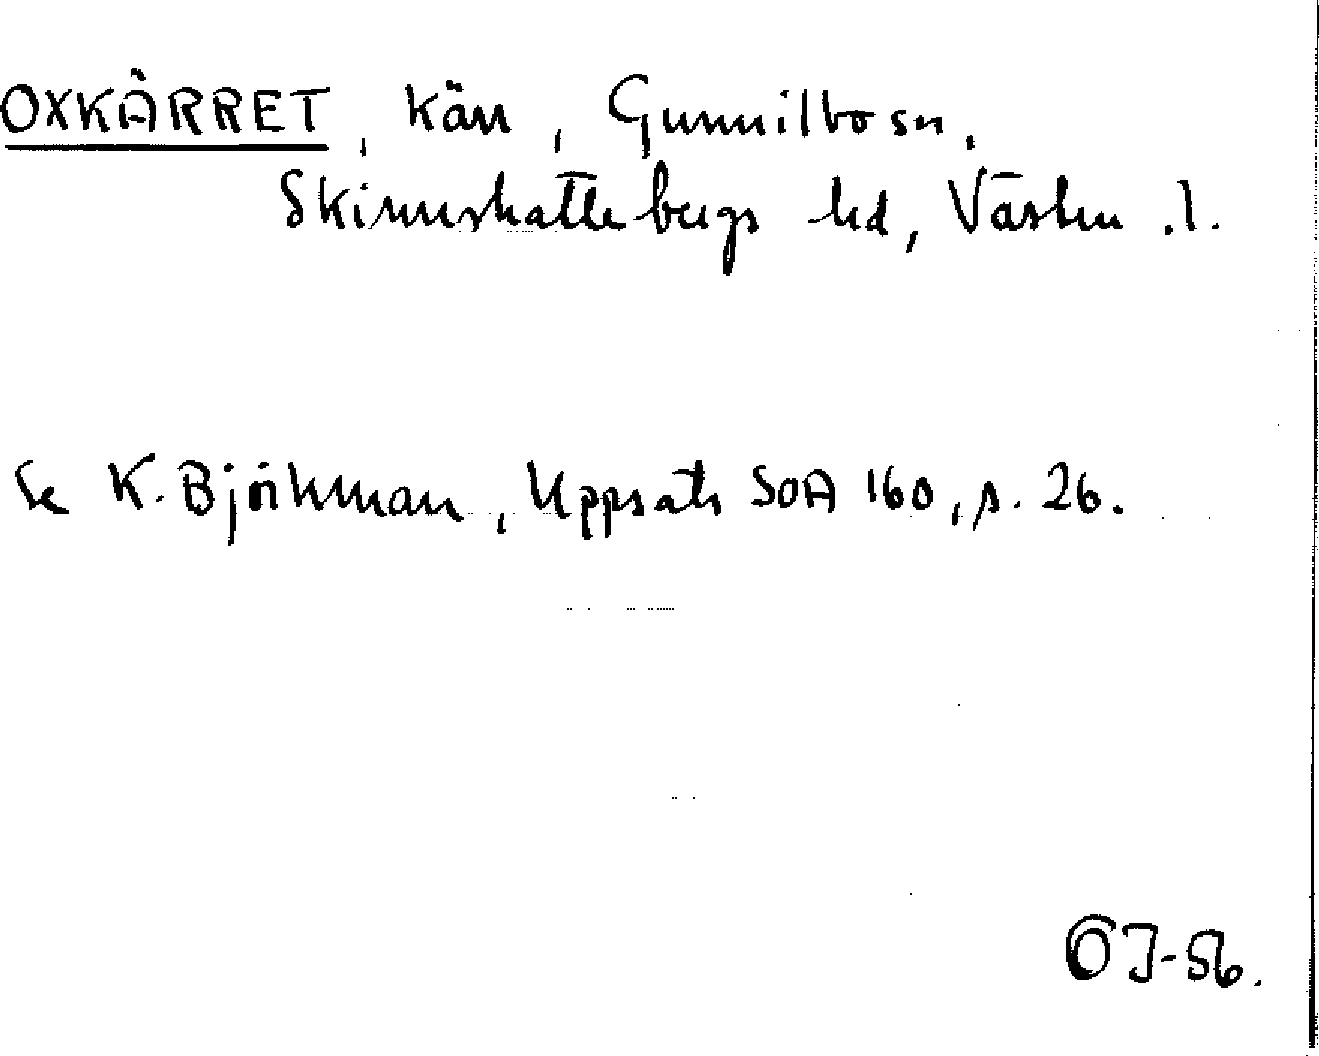 OXKÄRRET, kärr, Gunnilbo sn,
Skinnskattebergs hd, Västm. l.
Se K. Björkman, Uppsats SOA 160, s. 26.
OJ-56.